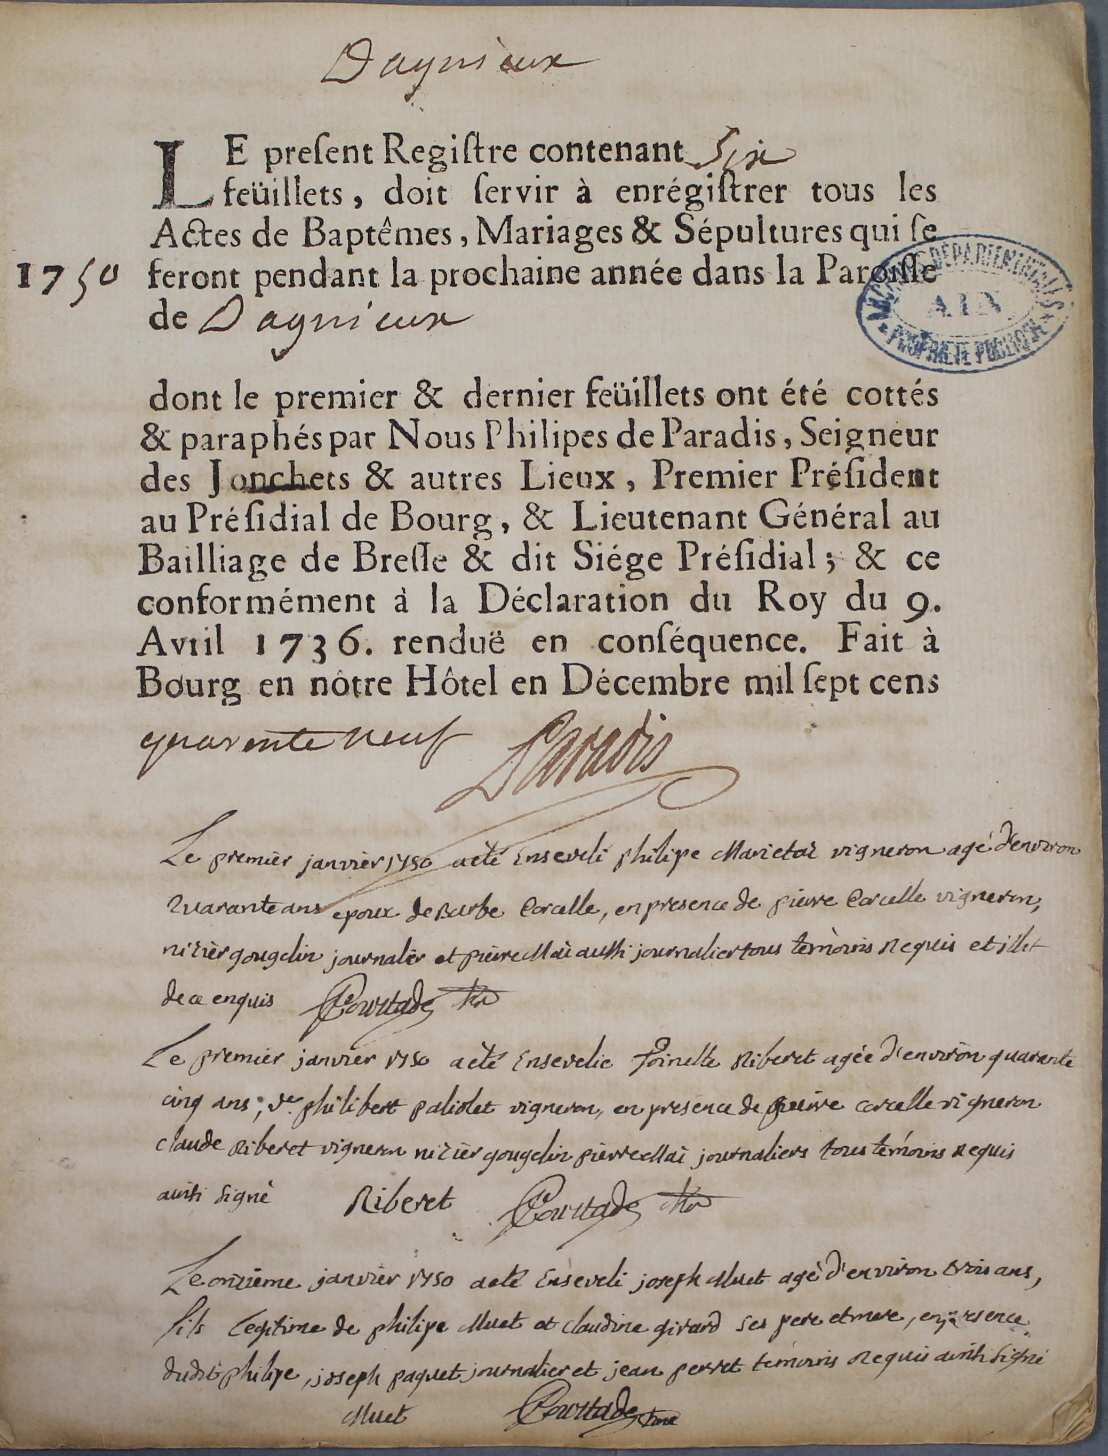 Dagnieux
LE preſent Regiſtre contenant Six
feüillets, doit ſervir à enrégiſtrer tous les
Actes de Baptêmes, Mariages & Sépultures qui ſe
1750 feront pendant la prochaine année dans la Paroiſſe
de Dagnieux
ARCHIVES DÉPARTEMENTALES
AIN
PROPRIÉTÉ PUBLIQUE
dont le premier & dernier feüillets ont été cottés
& paraphés par Nous Philipes de Paradis, Seigneur
des Jonchets & autres Lieux, Premier Préſident
au Préſidial de Bourg, & Lieutenant Général au
Bailliage de Breſſe & dit Siége Préſidial; & ce
conformément à la Déclaration du Roy du 9.
Avril 1736. renduë en conſéquence. Fait à
Bourg en nôtre Hôtel en Décembre mil ſept cens
quarente neuf Paradis
Le premier janvier 1750 a été Enseveli philipe Marietai vigneron agé d'environ
Quarante ans epoux de Barbe Corcelle, en presence de pierre Corcelle vigneron,
nizier gougelin journalier et pierre Mai aussi journalier tous temoins Requis et illet
de ce enquis Courtade
Le premier janvier 1750 a été Ensevelie Toinette Riberet agée d'environ quarente
cinq ans, ve philibert paliolet vigneron, en presence de pierre corcelle vigneron
claude Riberet vigneron nizier gougelin pierre Mai journaliers tous temoins Requis
aussi signé Riberet Courtade
Le onzieme janvier 1750 a été Enseveli joseph Muet agé d'environ trois ans,
fils Legitime de philipe Muet et claudine girard ses pere et mere, en presence
dudit philipe, joseph paquet journalier et jean perret temoins Requis aussi signé
Muet Courtade